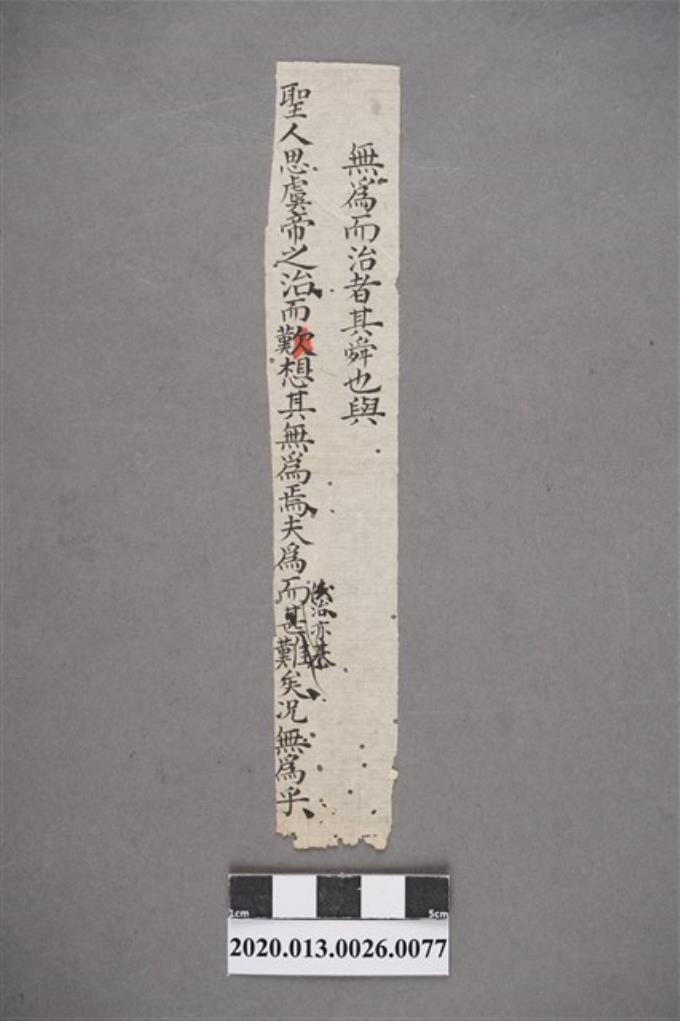 無為而治者其舜也與
聖人思虞帝之治而歎想其無為焉夫為而甚難矣況無為乎
治亦甚
1cm 5cm
2020.013.0026.0077